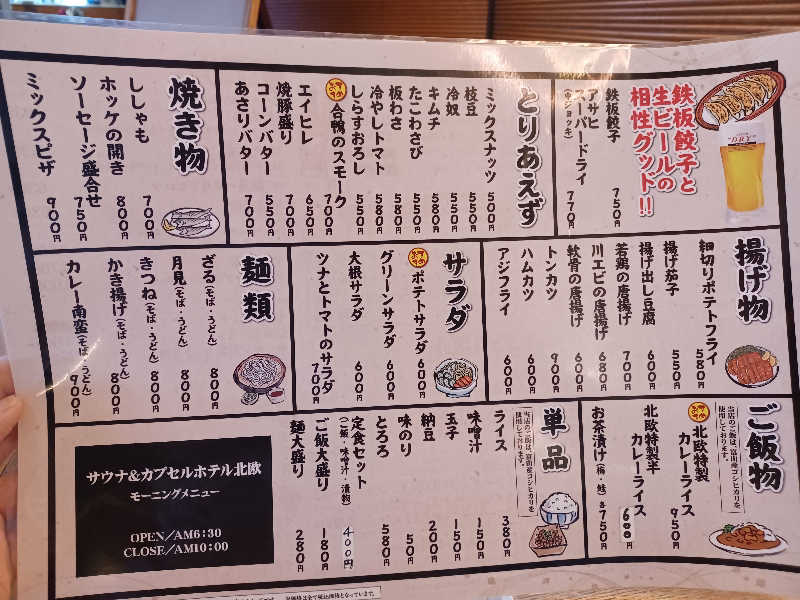 鉄板餃子と
生ビールの
相性グッド!!
鉄板餃子 750円
アサヒ
スーパードライ
(中ジョッキ) 770円
とりあえず
ミックスナッツ 500円
枝豆 550円
冷奴 550円
キムチ 580円
たこわさび 550円
板わさ 580円
冷やしトマト 580円
しらすおろし 550円
おすすめ 合鴨のスモーク 700円
エイヒレ 650円
焼豚盛り 700円
コーンバター 550円
あさりバター 700円
焼き物
ししゃも 700円
ホッケの開き 800円
ソーセージ盛合せ 750円
ミックスピザ 900円
揚げ物
細切りポテトフライ 580円
揚げ茄子 550円
揚げ出し豆腐 600円
若鶏の唐揚げ 700円
川エビの唐揚げ 680円
軟骨の唐揚げ 600円
トンカツ 900円
ハムカツ 600円
アジフライ 600円
サラダ
おすすめ ポテトサラダ 600円
グリーンサラダ 600円
大根サラダ 600円
ツナとトマトのサラダ 700円
麺類
ざる(そば・うどん) 800円
月見(そば・うどん) 800円
きつね(そば・うどん) 800円
かき揚げ(そば・うどん) 800円
カレー南蛮(そば・うどん) 900円
ご飯物
当店のご飯は、富山産コシヒカリを
使用しております。
おすすめ 北欧特製
カレーライス 950円
北欧特製半
カレーライス 600円
お茶漬け(梅・鮭) 各750円
単品
当店のご飯は、富山産コシヒカリを
使用しております。
ライス 380円
味噌汁 150円
玉子 150円
納豆 200円
味のり 50円
とろろ 580円
定食セット
(ご飯・味噌汁・漬物) 400円
ご飯大盛り 180円
麺大盛り 280円
サウナ&カプセルホテル北欧
モーニングメニュー
OPEN/AM6:30
CLOSE/AM10:00